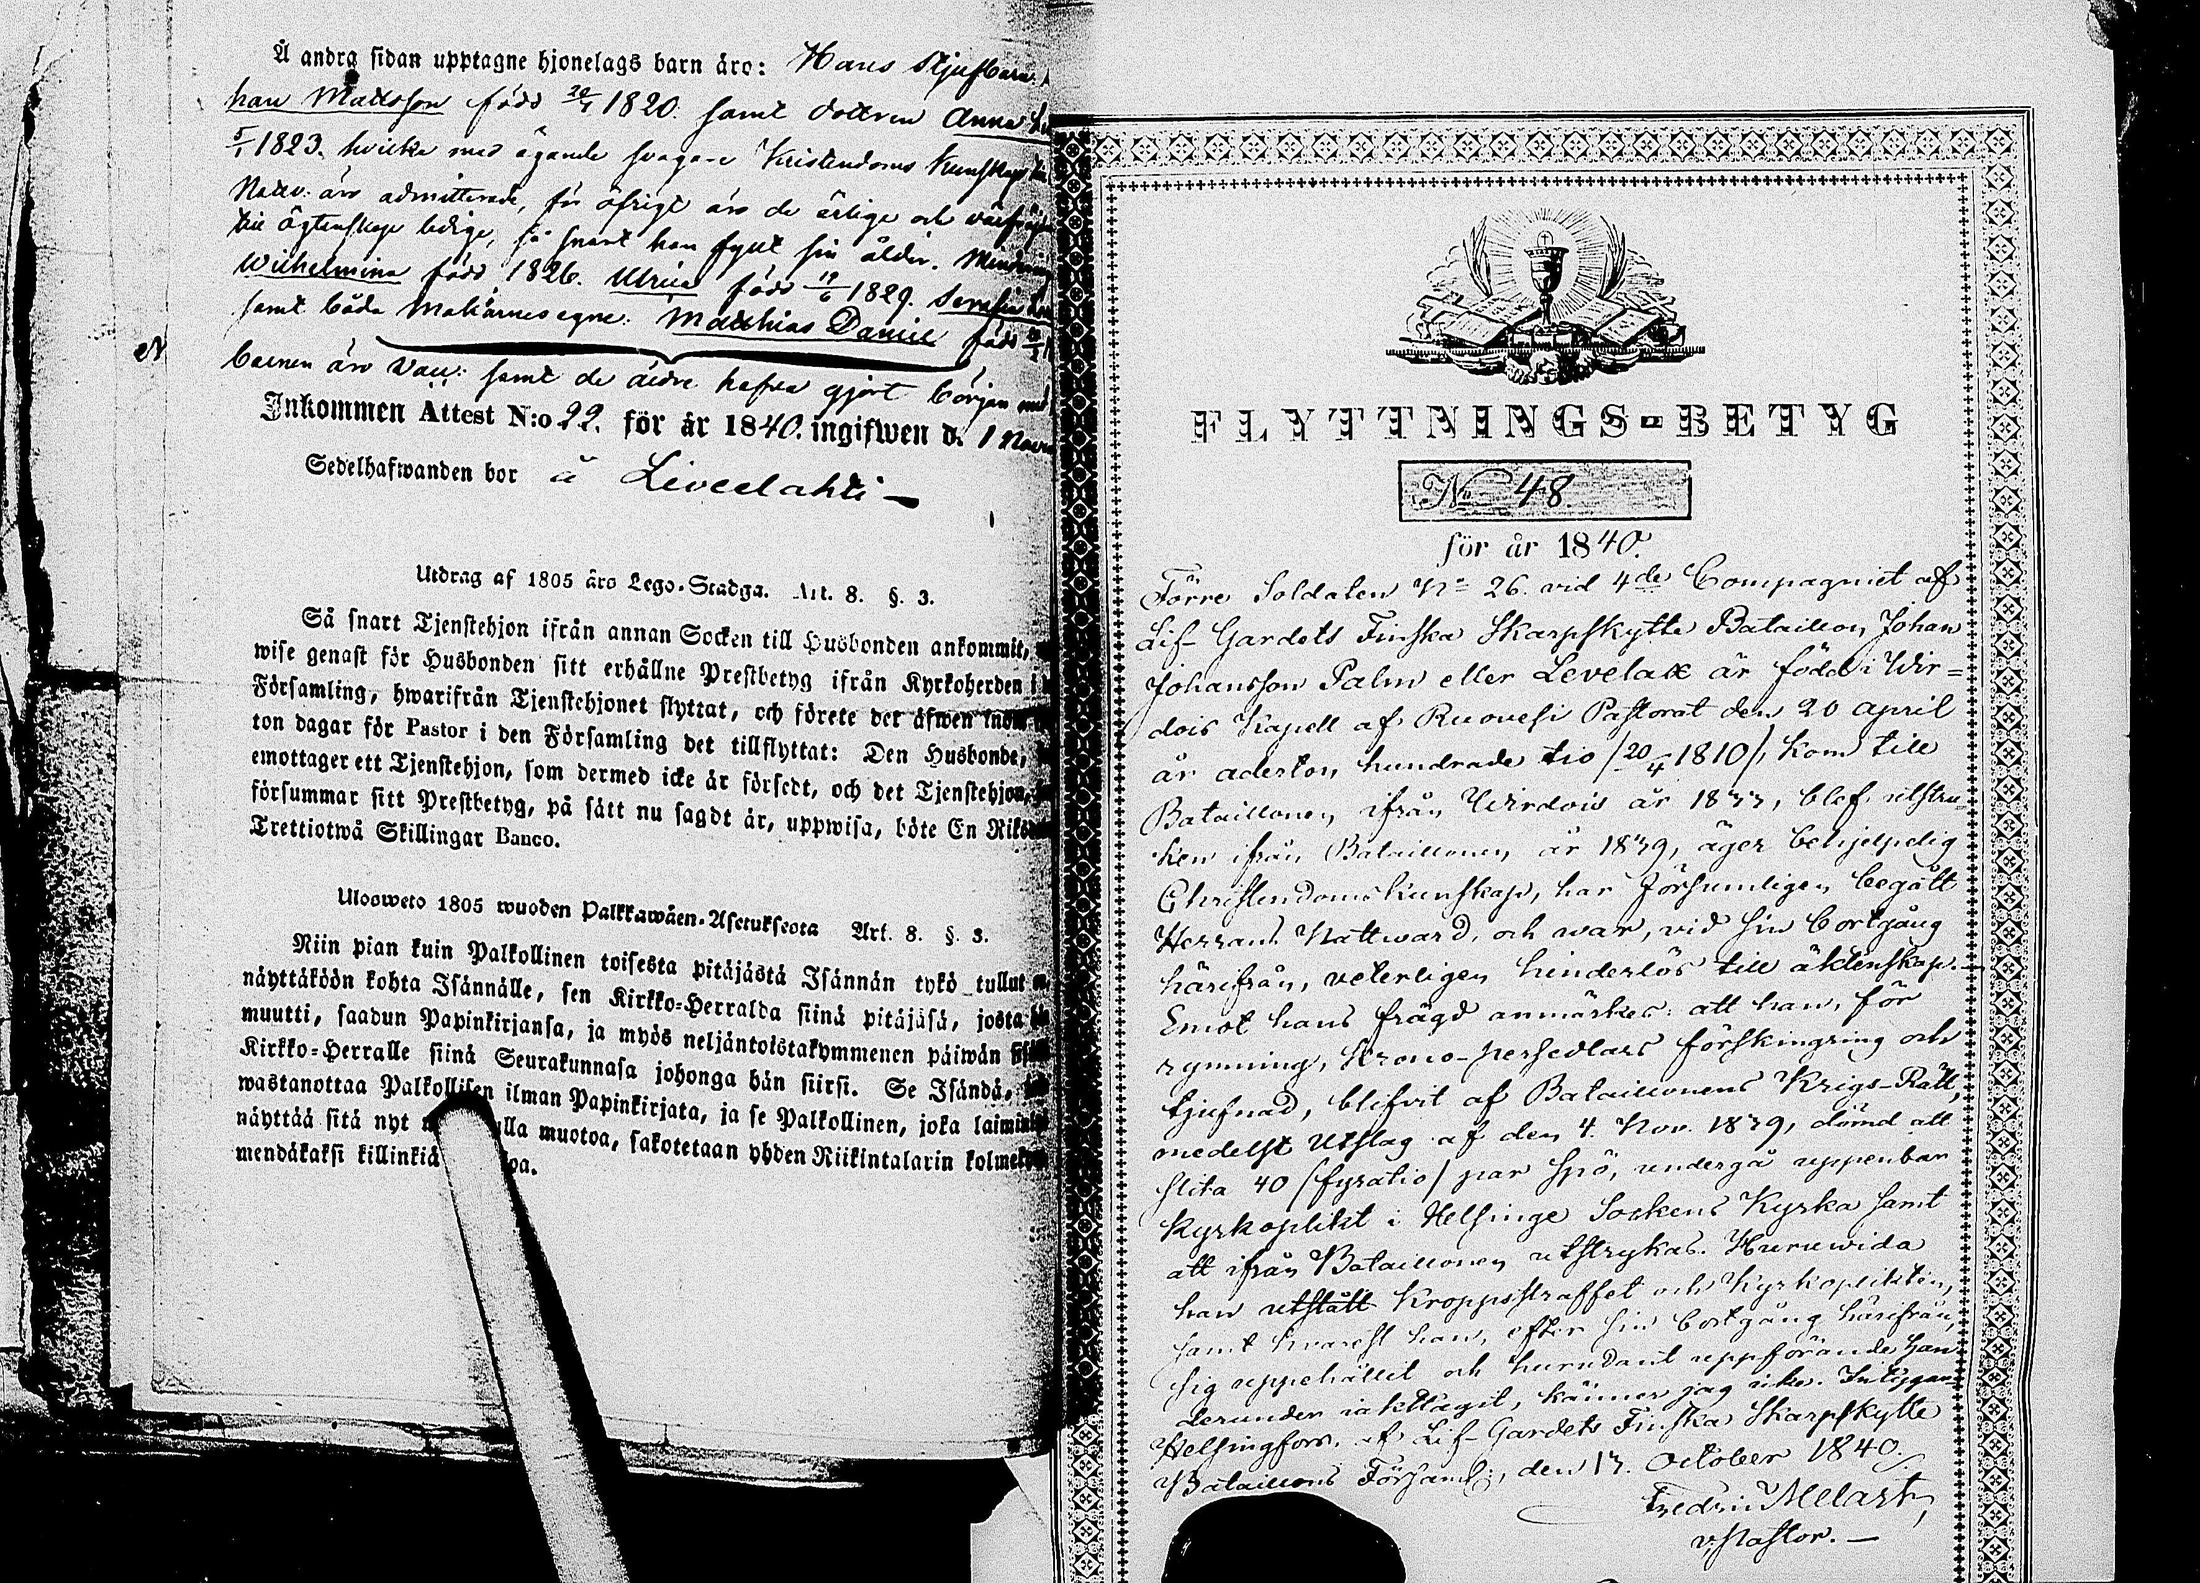 Å andra sidan upptagne hjonelags barn äro: Hans Stjufbarn
han Mattsson född 20/1 1820. samt dottren Anna
5/1 1823. hvilka med ägande svagare Kristendoms Kunskap
Nattv: äro admitterade, för öfrigt äro de ärlige och
till ägtenskap ledige, så snart han fyllt sin ålder.
Wilhelmina född 1826. Ulrica född 19/6 1829. Serafia
samt båda makarnes egne: Matthias Daniel född
barnen äro Vacc: samt de äldre hafva gjort början med
Inkommen Attest N:o 22. för år 1840. ingifwen d. 1 Nov
Sedelhafwanden bor å Liveelahti
Utdrag af 1805 års Lego-Stadga. Art. 8. §. 3.
Så snart Tjenstehjon ifrån annan Socken till Husbonden ankommit,
wise genast för Husbonden sitt erhållne Prestbetyg ifrån Kyrkoherden i
Församling, hwarifrån Tjenstehjonet flyttat, och förete det äfwen inom
ton dagar för Pastor i den Församling det tillflyttat: Den Husbonde,
emottager ett Tjenstehjon, som dermed icke är försedt, och det Tjenstehjon,
försummar sitt Prestbetyg, på sätt nu sagdt är, uppwisa, böte En Riks
Trettiotwå Skillingar Banco.
Ulosweto 1805 wuoden Palkkawäen-Asetuksesta Art. 8. §. 3.
Niin pian kuin Palkollinen toisesta pitäjästä Isännän tykö tullut
näyttäköön kohta Isännälle, sen Kirkko-Herralda siinä pitäjäsä, josta
muutti, saadun Papinkirjansa, ja myös neljäntoistakymmenen päiwän
Kirkko-Herralle siinä Seurakunnasa johonga hän siirsi. Se Isändä,
wastanottaa Palkollisen ilman Papinkirjata, ja se Palkollinen, joka laimin
näyttää sitä nyt lla muotoa, sakotetaan yhden Riikintalarin kolme
mendäkaksi killinkiä oa.
FLYTTNINGS-BETYG
No 48.
för år 1840.
Förre Soldaten No 26. vid 4de Compagniet af
Lif-Gardets Finska Skarpskytte Bataillon, Johan
Johansson Palm eller Levelax är född i Wir=
dois Kapell af Ruovesi Pastorat den 20 april
år aderton hundrade tio /20/4 1810/, kom till
Bataillonen ifrån Wirdois år 1833, blef utstru-
ken ifrån Bataillonen år 1839, äger behjelpelig
Christendomskunskap, har försumligen begått
Herrans Nattward, och war, vid sin bortgång
härifrån, veterligen hinderlös till äktenskap.
Emot hans frägd anmärkes: att han, för
rymning, Krono-persedlars förskingring och
tjufnad, blifvit af Bataillonens Krigs-Rätt,
medelst Utslag af den 4. Nov. 1839, dömd att
slita 40 /fyratio/ par spö, undergå uppenbar
Kyrkoplikt i Helsinge Sockens Kyrka samt
att ifrån Bataillonen utstrykas. Huruwida
han utstått Kroppsstraffet och Kyrkoplikten,
samt hvarest han, efter sin bortgång härifrån,
sig uppehållit och hurudant uppförande han
derunder iakttagit, känner jag icke. Intygar
Helsingfors, af Lif-Gardets Finska Skarpskytte
Bataillons Församl:, den 13. October 1840.
Fredric Melart,
v: Pastor.